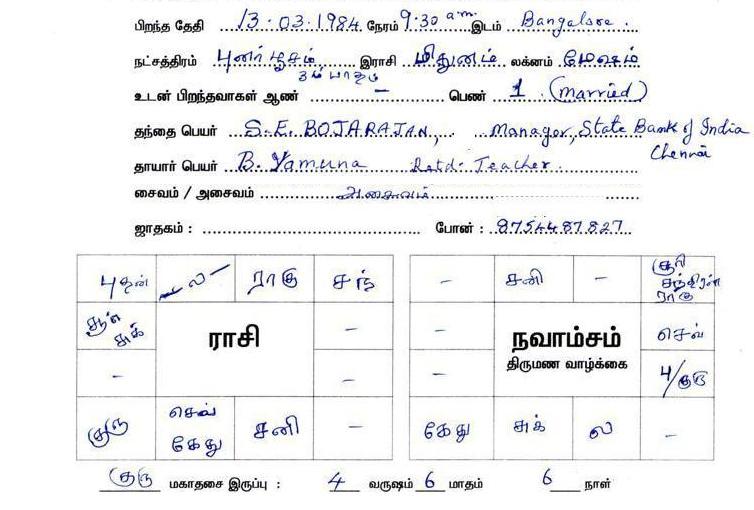 பிறந்த தேதி 13.03.1984 நேரம் 9:30 a.m. இடம் Bangalore.
நட்சத்திரம் புனர்பூசம் இராசி மிதுனம் லக்னம் மேஷம்
3ம் பாதம்
உடன் பிறந்தவாகள் ஆண் – பெண் 1 (married)
தந்தை பெயர் S.E. BOJARAJAN, Manager, State Bank of India
Chennai
தாயார் பெயர் B. Yamuna Retd. Teacher.
சைவம் / அசைவம் அசைவம்
ஜாதகம் : போன் : 8754487827
புதன் ல ராகு சந் – சனி – சூரி சந்திரன் ராகு
சூரி சுக் ராசி – – நவாம்சம் செவ்
திருமண வாழ்க்கை
– – – பு/குரு
குரு செவ் கேது சனி – கேது சுக் ல –
குரு மகாதசை இருப்பு : 4 வருஷம் 6 மாதம் 6 நாள்